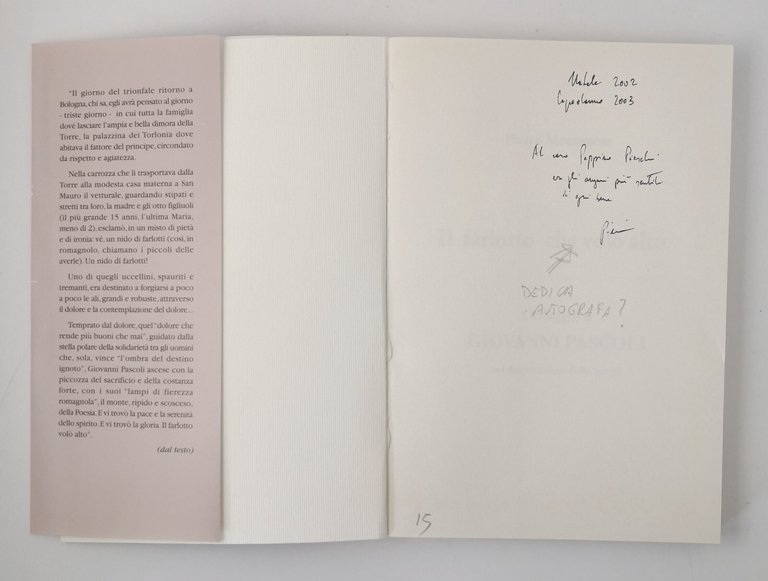 "Il giorno del trionfale ritorno a
Bologna, chi sa, egli avrà pensato al giorno
- triste giorno - in cui tutta la famiglia
dové lasciare l'ampia e bella dimora della
Torre, la palazzina dei Torlonia dove
abitava il fattore del principe, circondato
da rispetto e agiatezza.
Nella carrozza che li trasportava dalla
Torre alla modesta casa materna a San
Mauro il vetturale, guardando stipati e
stretti tra loro, la madre e gli otto figliuoli
(il più grande 15 anni, l'ultima Maria,
meno di 2), esclamò, in un misto di pietà
e di ironia: vè, un nido di farlotti (così, in
romagnolo, chiamano i piccoli delle
averle). Un nido di farlotti!
Uno di quegli uccellini, spauriti e
tremanti, era destinato a forgiarsi a poco
a poco le ali, grandi e robuste, attraverso
il dolore e la contemplazione del dolore...
Temprato dal dolore, quel "dolore che
rende più buoni che mai", guidato dalla
stella polare della solidarietà tra gli uomini
che, sola, vince "l'ombra del destino
ignoto", Giovanni Pascoli ascese con la
piccozza del sacrificio e della costanza
forte, con i suoi "lampi di fierezza
romagnola", il monte, ripido e scosceso,
della Poesia. E vi trovò la pace e la serenità
dello spirito. E vi trovò la gloria. Il farlotto
volò alto".
(dal testo)
Natale 2002
Capodanno 2003
Al caro Peppino
con gli auguri più sentiti
di ogni bene
DEDICA
AUTOGRAFA?
Il farlotto che volò alto
GIOVANNI PASCOLI
15